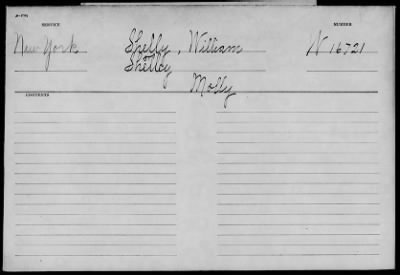 SERVICE NUMBER
New York Shelly, William W 16721
Shelley
Molly
CONTENTS